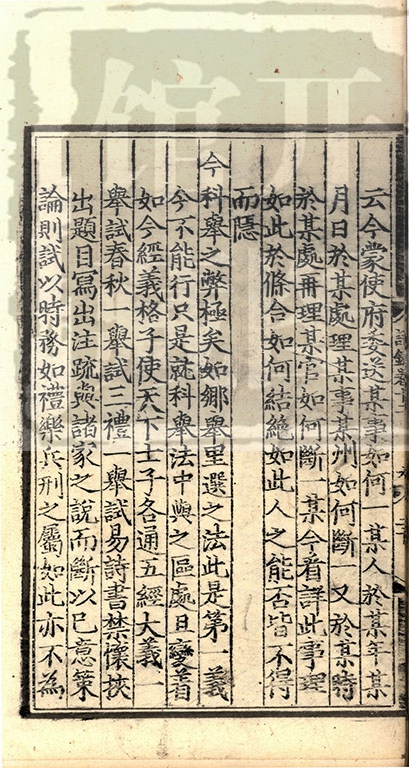 云今蒙使府委送某事如何一某人於某年某
月日於某處理某事某州如何斷一又於某時
於某處再理某官如何斷一某今看詳此事理
如此於條合如何結絶如此人之能否皆不得
而隱
今科舉之弊極矣如鄉舉里選之法此是第一義
今不能行只是就科舉法中與之區處且變着
如今經義格子使天下士子各通五經大義一
舉試春秋一舉試三禮一舉試易詩書禁懷挾
出題目寫出注疏與諸家之說而斷以己意策
論則試以時務如禮樂兵刑之屬如此亦不為